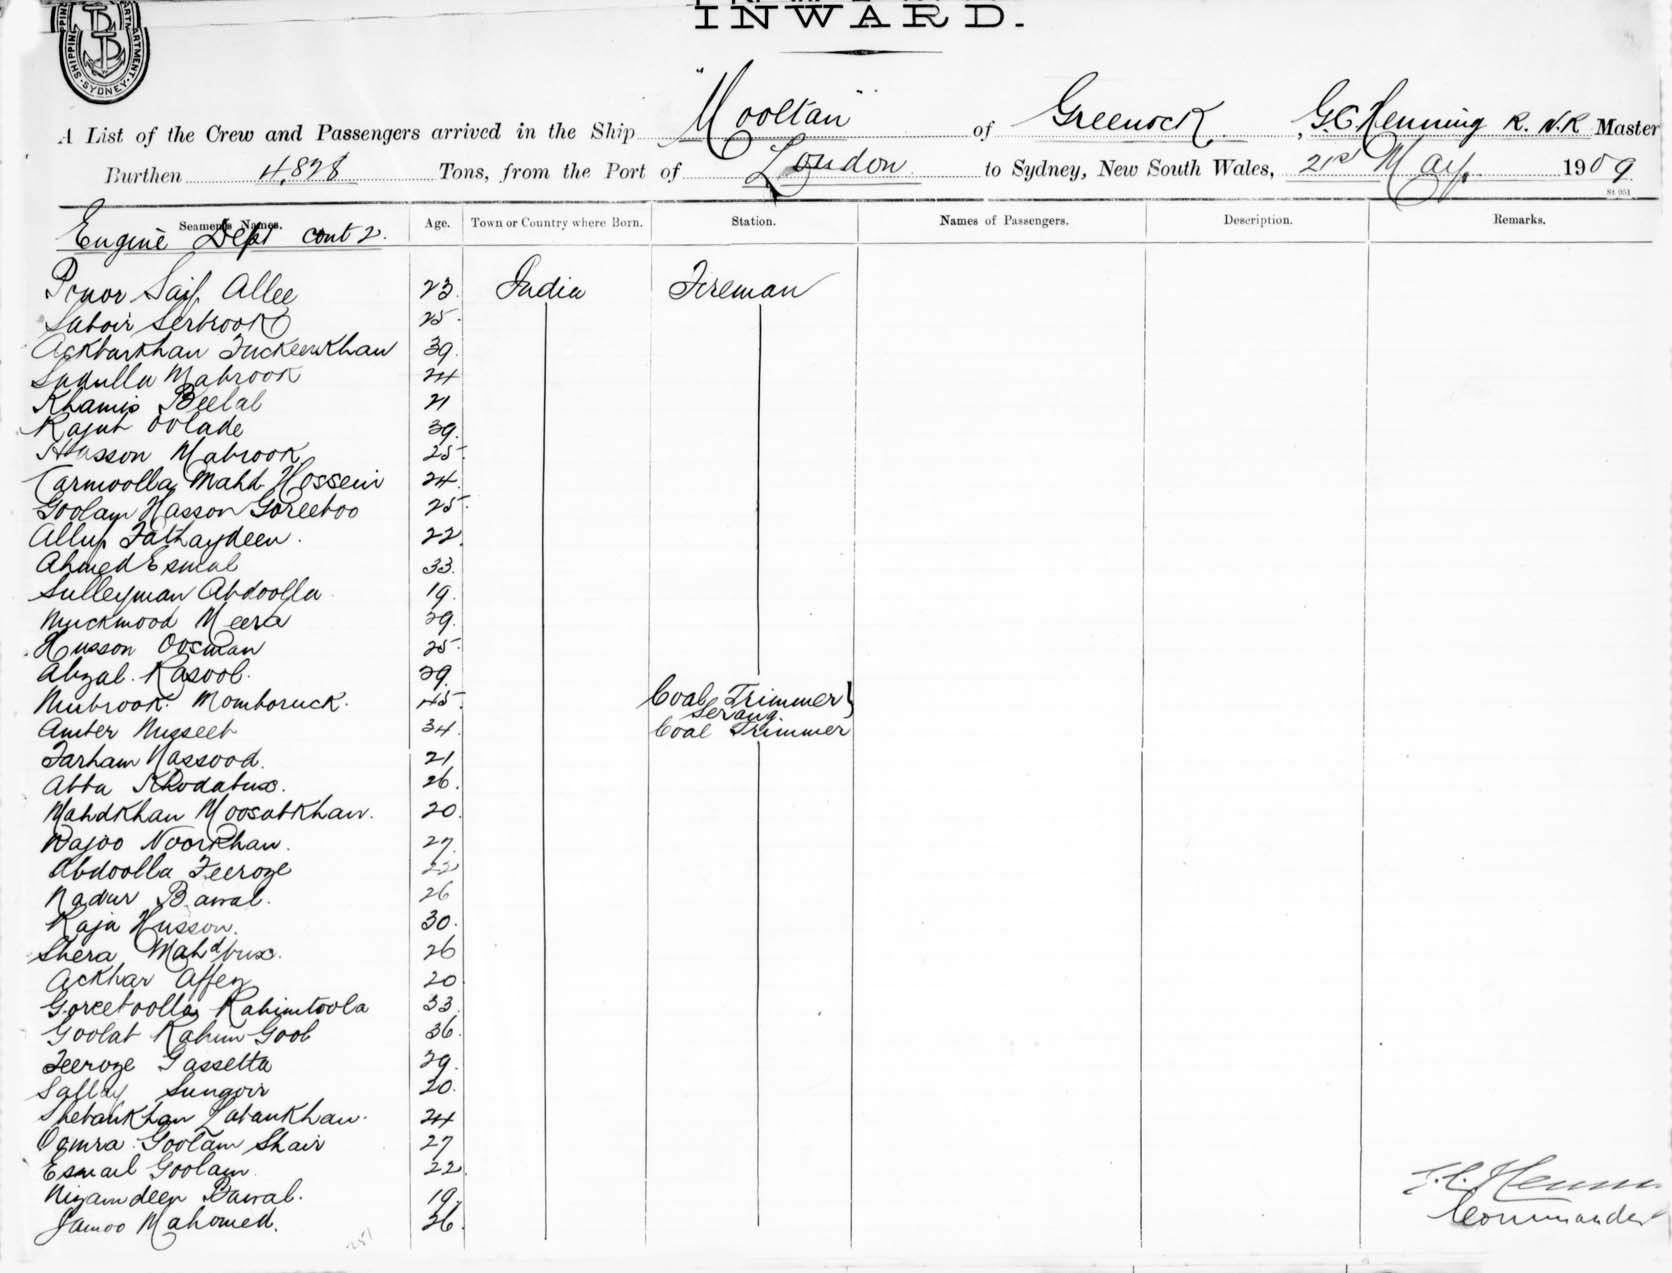 INWARD.
SHIPPING DEPARTMENT. SYDNEY.
A List of the Crew and Passengers arrived in the Ship "Mooltan" of Greenock, G.C. Henning R.N.R Master
Burthen 4,828 Tons, from the Port of London to Sydney, New South Wales, 21st May, 1909
Seamen's Names. Age. Town or Country where Born. Station. Names of Passengers. Description. Remarks.
Engine Dept cont 2.
Saif Allee 23. India Fireman
Saboir Serbrook 25.
Ackbarkhan Tuckeerkhan 39.
Sudulla Mabrook 24
Khamis Beelal 21
Rajub Oolade 39.
Husson Mabrook 25.
Carmoolla Mahd Hossein 24.
Goolam Hasson Goreeboo 25.
Allup Fathaydeen. 22.
Ahmed Esmal 33.
Sulleyman Abdoolla 19.
Muckmood Meera 29.
Husson Oosman 25.
Abzal. Rasool. 29.
Mubrook. Momboruck. 45. Coal Trimmer}
Serang.
Amber Nusseeb 34. Coal Trimmer
Farham Nassood. 21.
Abba Khodabux. 26.
Mahdkhan Moosabkhan. 20.
Rajoo Noorkhan. 27.
Abdoolla Feeroze 22
Nadur Bawal. 26
Raja Husson. 30.
Shera Mahdbux. 26
Ackbar Affen 20
Goreeboolla Rahimtoola 33.
Goolab Rahim Gool 36.
Feeroze Gassetta 29.
Salley Sungoir 20.
Shebankhan Labankhan. 24
Oomra Goolam Shair 27
Esmail Goolam 22.
Nizamdeen Bawal. 19.
Jamoo Mahomed. 26.
Commander
251